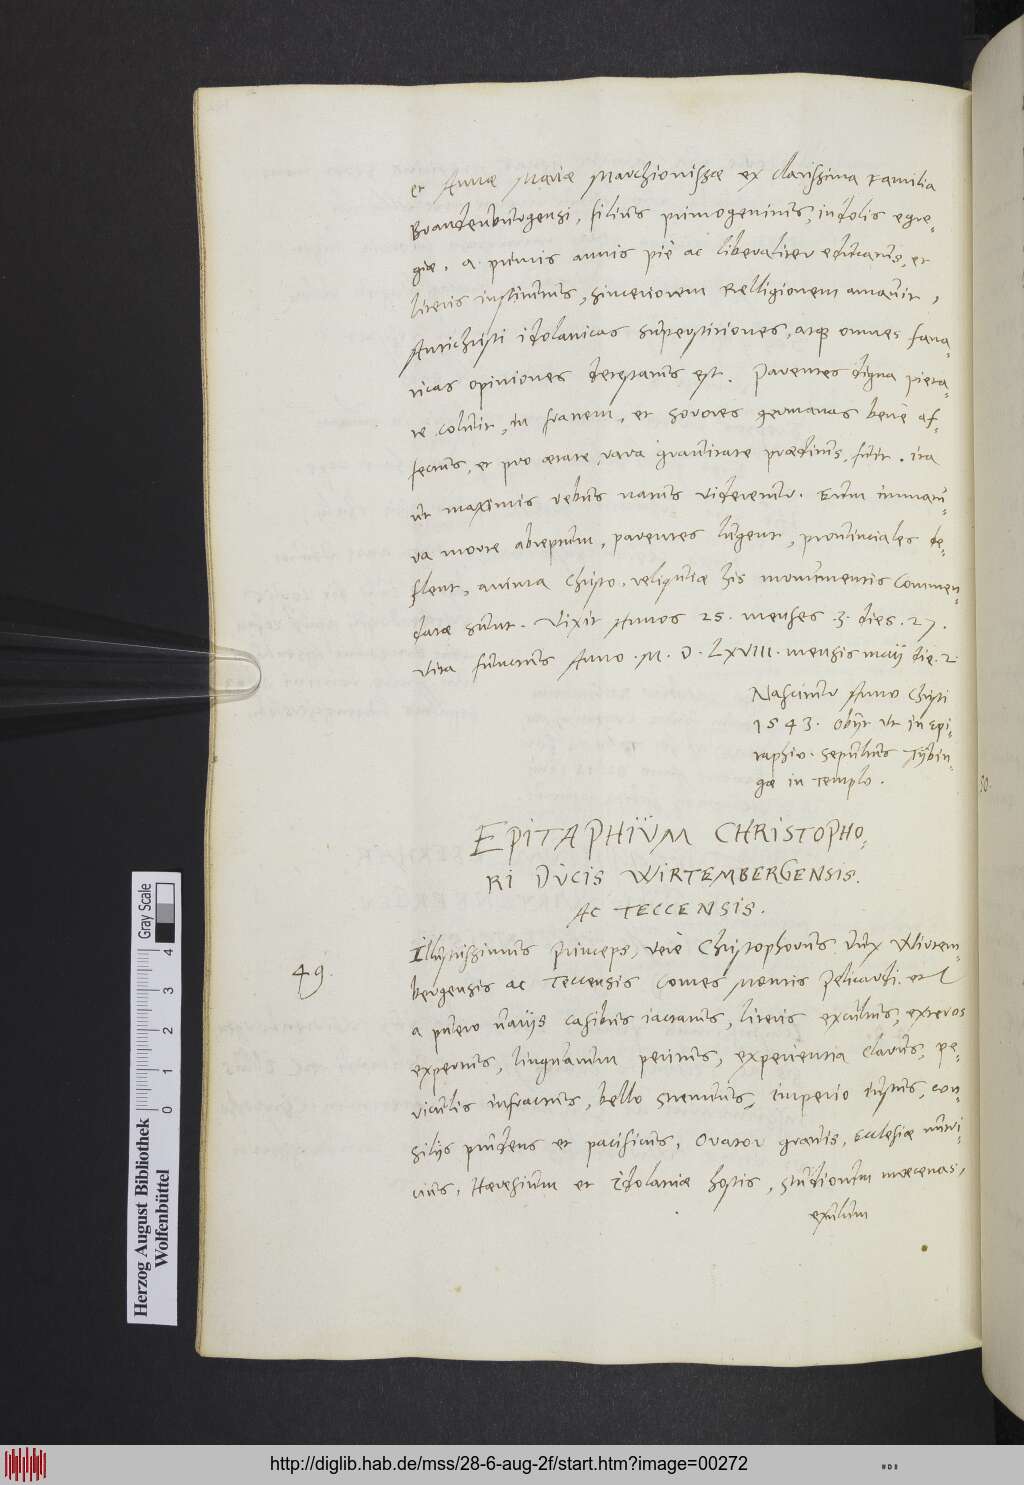 et Annæ Mariæ Marchionissæ ex clarissima Familia
Brandenburgensi, filius primogenitus, indolis egre-
giæ. a primis annis piè ac liberaliter educatus, et
literis institutus, sinceriorem Relligionem amavit,
Antichristi idolatricas superstitiones, atq omnes fana-
ticas opiniones detestatus est. Parentes digna pieta-
te coluit, in fratrem, et sorores germanas benè af-
fectus, et pro ætate, rara gravitate præditus, fuit. ita
ut maximis rebus natus videretur. Eum immatu-
ra morte abreptum, parentes lugent, provinciales de-
flent, anima Christo, reliquiæ his monumentis commen-
datæ sunt. Vixit Annos 25. menses .3. dies .27.
Vita functus Anno .M. D. LXVIII. mensis maij die. 2.
Nascitur Anno Christi
1543. Obijt ut in epi-
taphio. sepultus Tÿbin-
gæ in templo.
50.
EPITAPHIUM CHRISTOPHO-
RI DUCIS WIRTEMBERGENSIS.
AC TECCENSIS.
49.
Illustrissimus Princeps, verè Christophorus Dux Wirtem-
bergensis ac Teccensis Comes Montis Pelicardi. et
a puero varijs casibus iactatus, literis excultus, exteros
expertus, linguarum peritus, experientia clarus, pe-
riculis infractus, bello strenuus, imperio iustus, con-
silijs prudens et pacificus, Orator gravis, Ecclesiæ nutri-
cius, Hæresium et Idolatriæ hostis, studiorum mæcenas,
exulum
Herzog August Bibliothek
Wolfenbüttel
0 1 2 3 4 Gray Scale
http://diglib.hab.de/mss/28-6-aug-2f/start.htm?image=00272